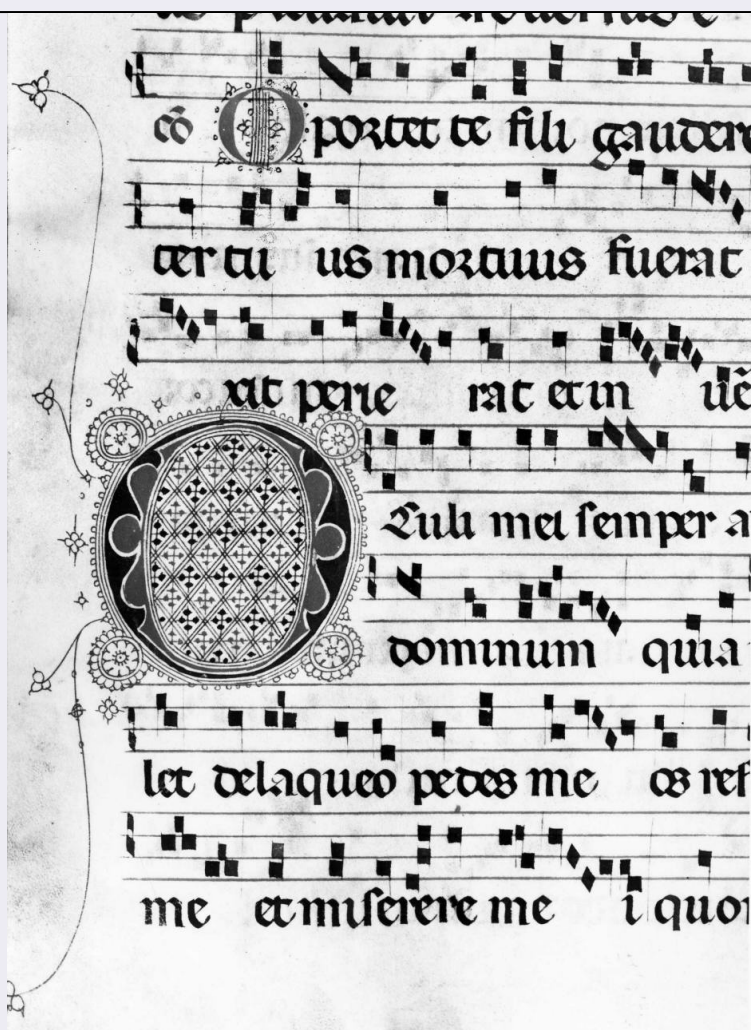 cō Oportet te fili gaudere
ter tu us mortuus fuerat
xit perie rat et in uē
Oculi mei semper a
dominum quia
let de laqueo pedes me os ref
me et miserere me i quon